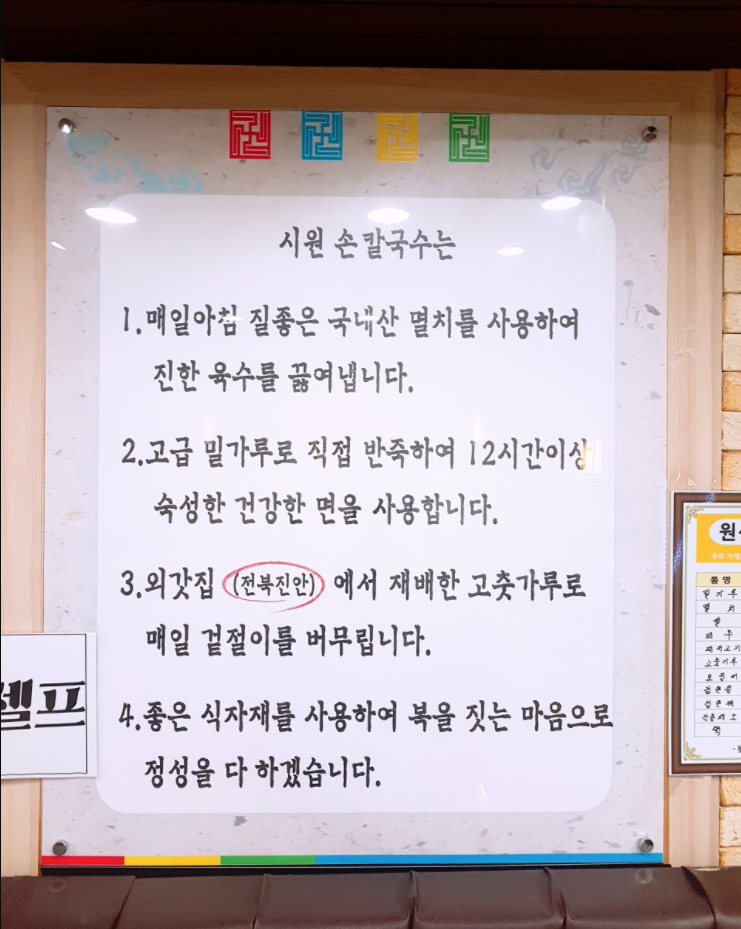 시원 손칼국수는
1.매일아침 질좋은 국내산 멸치를 사용하여
진한 육수를 끓여냅니다.
2.고급 밀가루로 직접 반죽하여 12시간이상
숙성한 건강한 면을 사용합니다.
3.외갓집 (전북진안) 에서 재배한 고춧가루로
매일 겉절이를 버무립니다.
4.좋은 식자재를 사용하여 복을 짓는 마음으로
정성을 다 하겠습니다.
셀프
원
품명
밀가루
멸치
쌀
배추
돼지고기
고춧가루